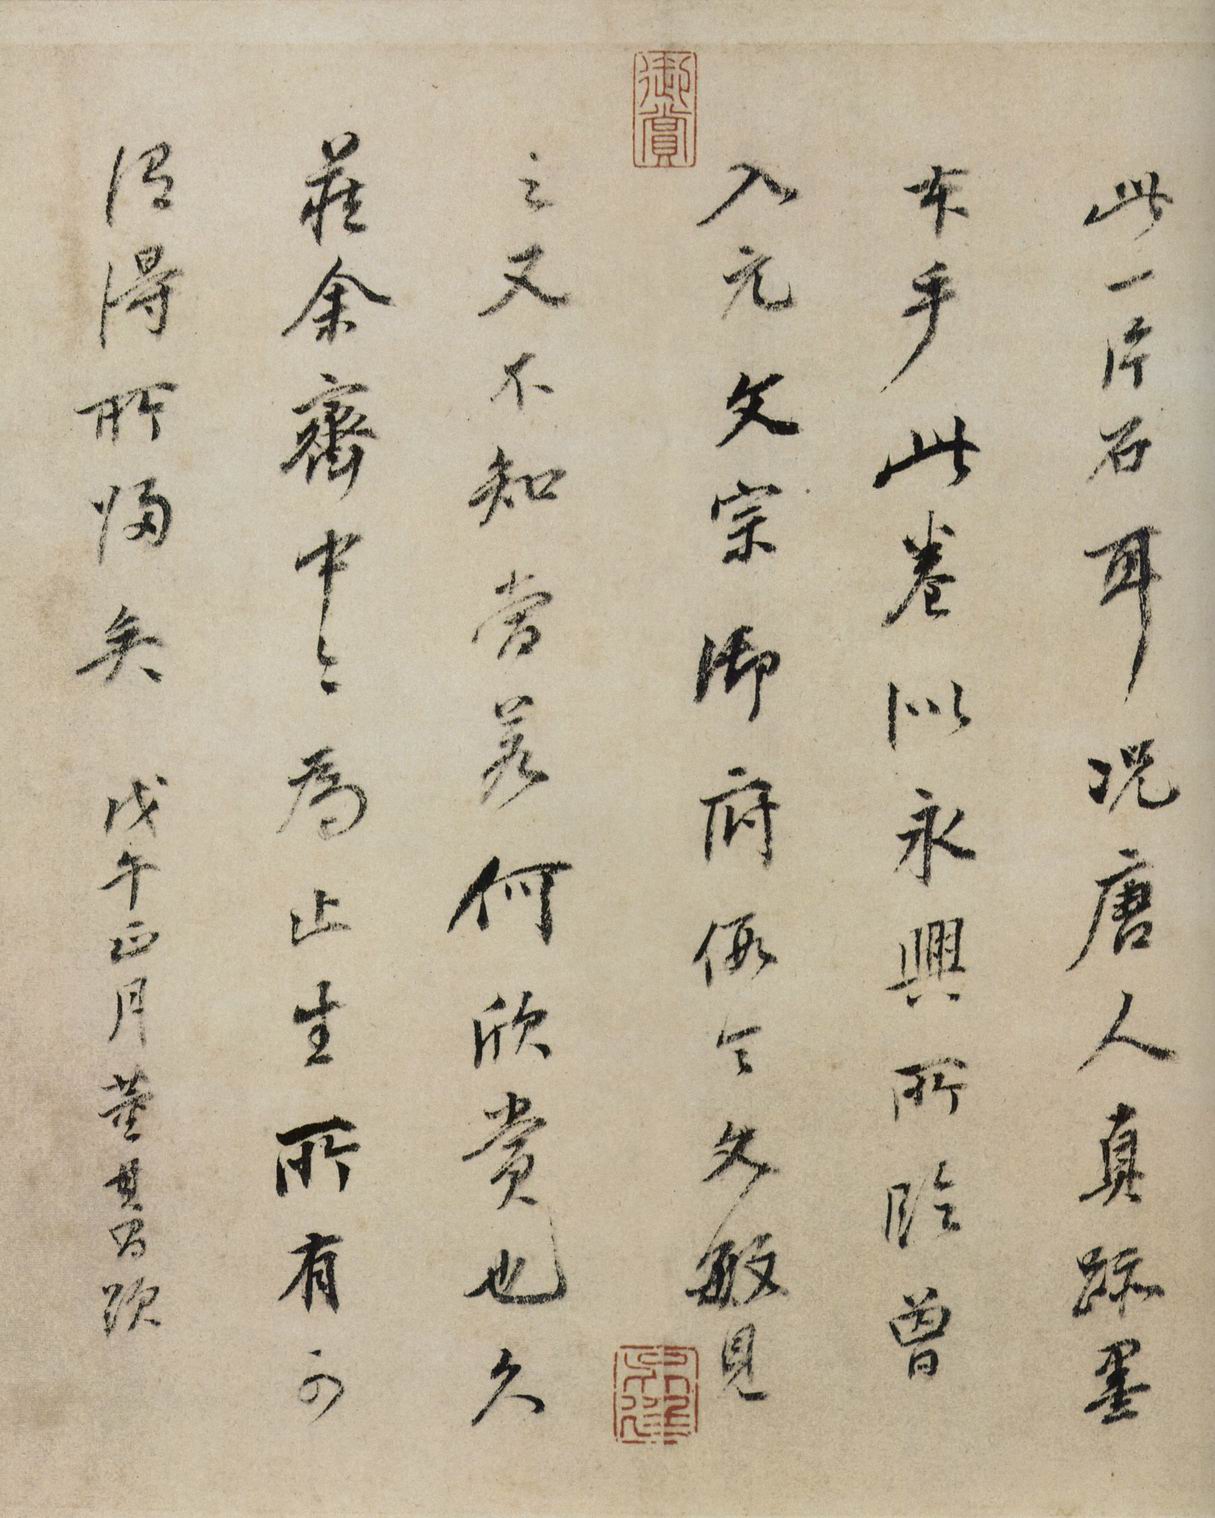 此一片石耳况唐人真跡墨
本手此卷似永興所臨曾
入元文宗御府假令文敏見
之又不知當若何欣賞也久
藏余齋中今為止生所有可
謂得所歸矣 戊午正月董其昌跋
御賞